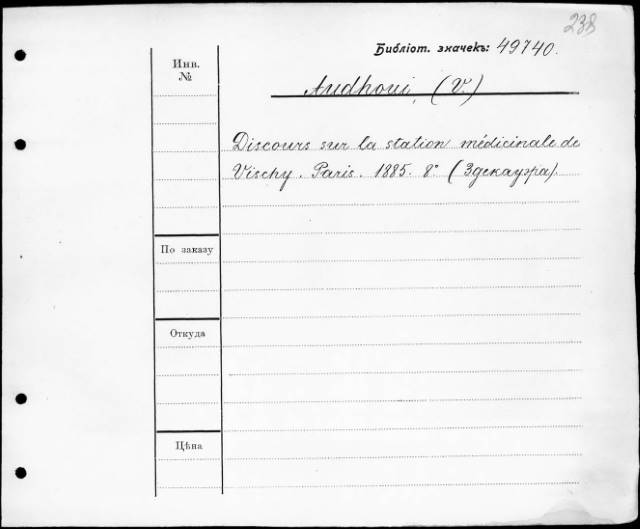 238
Библіот. значекъ: 49740.
Инв.
№
Audhoui, (V.)
Discours sur la station médicinale de
Vischy. Paris. 1885. 8° (Здекауэра).
По заказу
Откуда
Цѣна